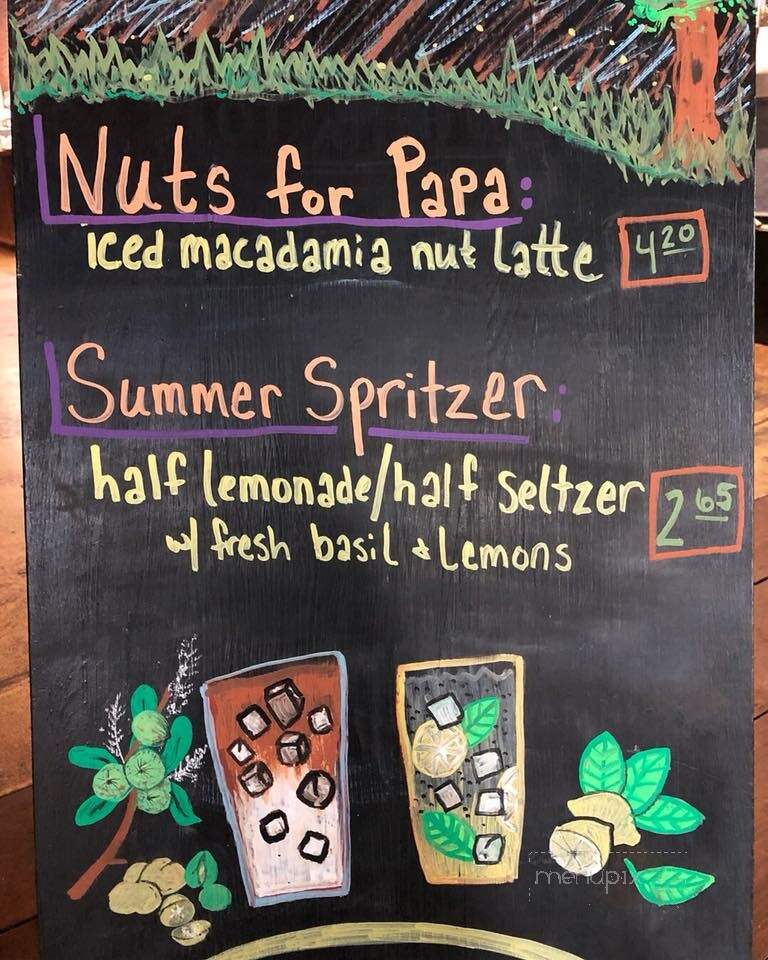 Nuts for Papa:
iced macadamia nut latte 4 20
Summer Spritzer:
half lemonade/half seltzer 2 65
w/ fresh basil & lemons
menupix